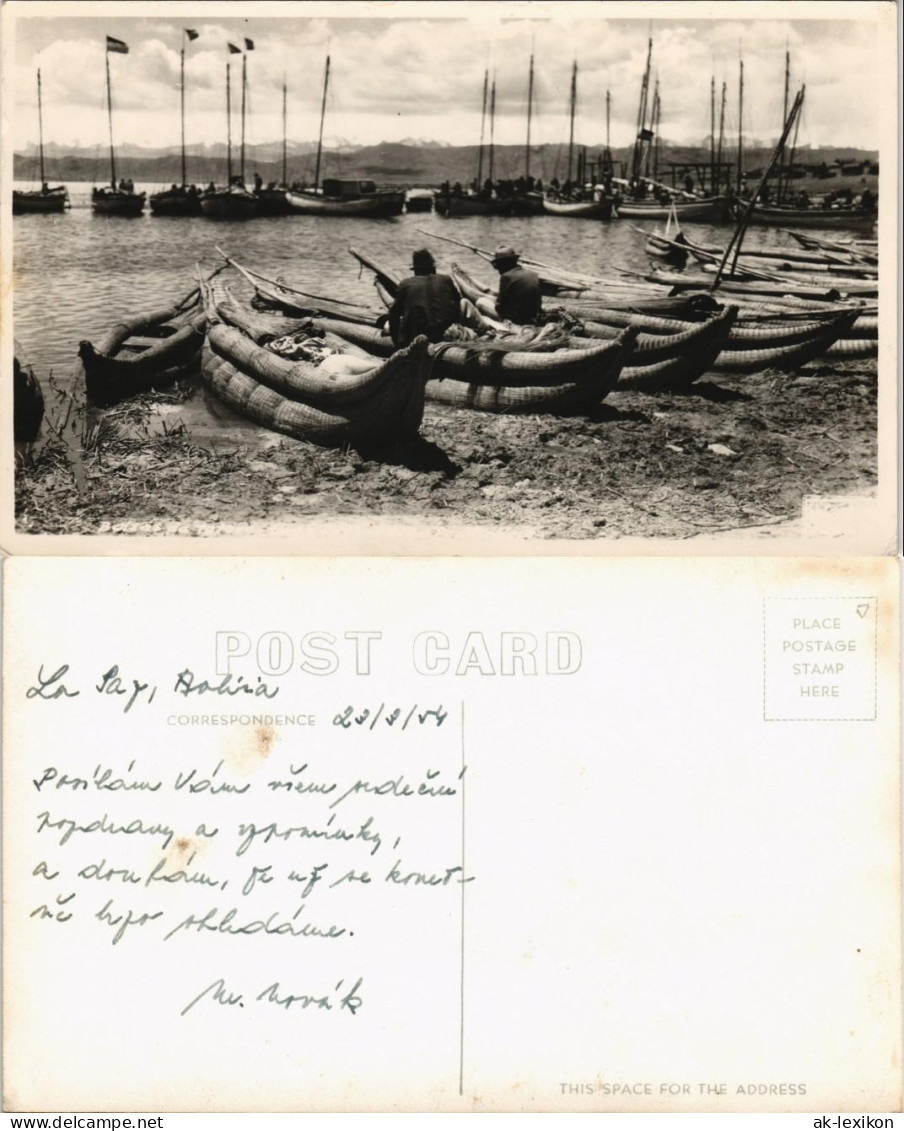 Balsas
POST CARD
PLACE
POSTAGE
STAMP
HERE
La Paz, Bolívia
CORRESPONDENCE
23/3/54
Posílám Vám všem srdečné
pozdravy a vzpomínky,
a doufám, že už se koneč-
ně brzo shledáme.
M. Novák
THIS SPACE FOR THE ADDRESS
ak-lexikon
www.delcampe.net